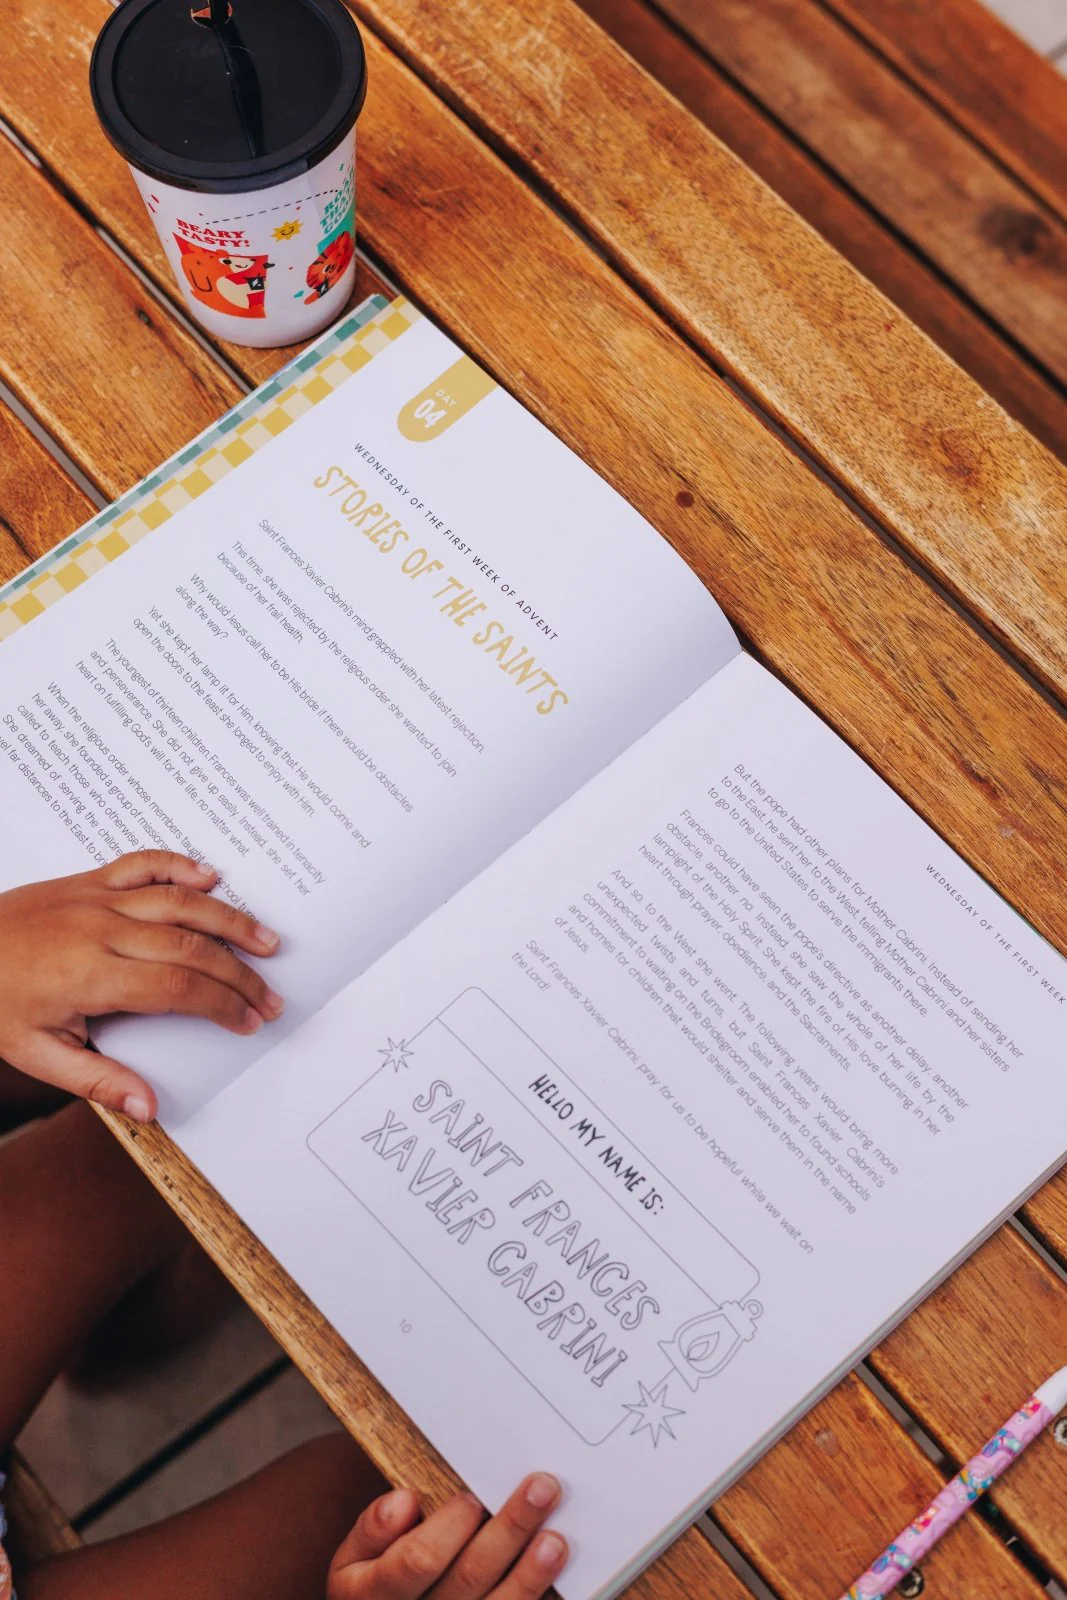 BEARY
TASTY!
DAY
04
WEDNESDAY OF THE FIRST WEEK OF ADVENT
STORIES OF THE SAINTS
Saint Frances Xavier Cabrini's mind grappled with her latest rejection.
This time, she was rejected by the religious order she wanted to join
because of her frail health.
Why would Jesus call her to be His bride if there would be obstacles
along the way?
Yet she kept her lamp lit for Him, knowing that He would come and
open the doors to the feast she longed to enjoy with Him.
The youngest of thirteen children, Frances was well trained in tenacity
and perseverance. She did not give up easily. Instead, she set her
heart on fulfilling God's will for her life, no matter what.
When the religious order whose members taught at school turned
her away, she founded a group of missionar
called to teach those who otherwise
She dreamed of serving the childre
vel far distances to the East to brin
WEDNESDAY OF THE FIRST WEEK
But the pope had other plans for Mother Cabrini. Instead of sending her
to the East, he sent her to the West, telling Mother Cabrini and her sisters
to go to the United States to serve the immigrants there.
Frances could have seen the pope's directive as another delay, another
obstacle, another no. Instead, she saw the whole of her life by the
lamplight of the Holy Spirit. She kept the fire of His love burning in her
heart through prayer, obedience, and the Sacraments.
And so, to the West she went. The following years would bring more
unexpected twists and turns, but Saint Frances Xavier Cabrini's
commitment to waiting on the Bridegroom enabled her to found schools
and homes for children that would shelter and serve them in the name
of Jesus.
Saint Frances Xavier Cabrini, pray for us to be hopeful while we wait on
the Lord!
HELLO MY NAME IS:
SAINT FRANCES
XAVIER CABRINI
10